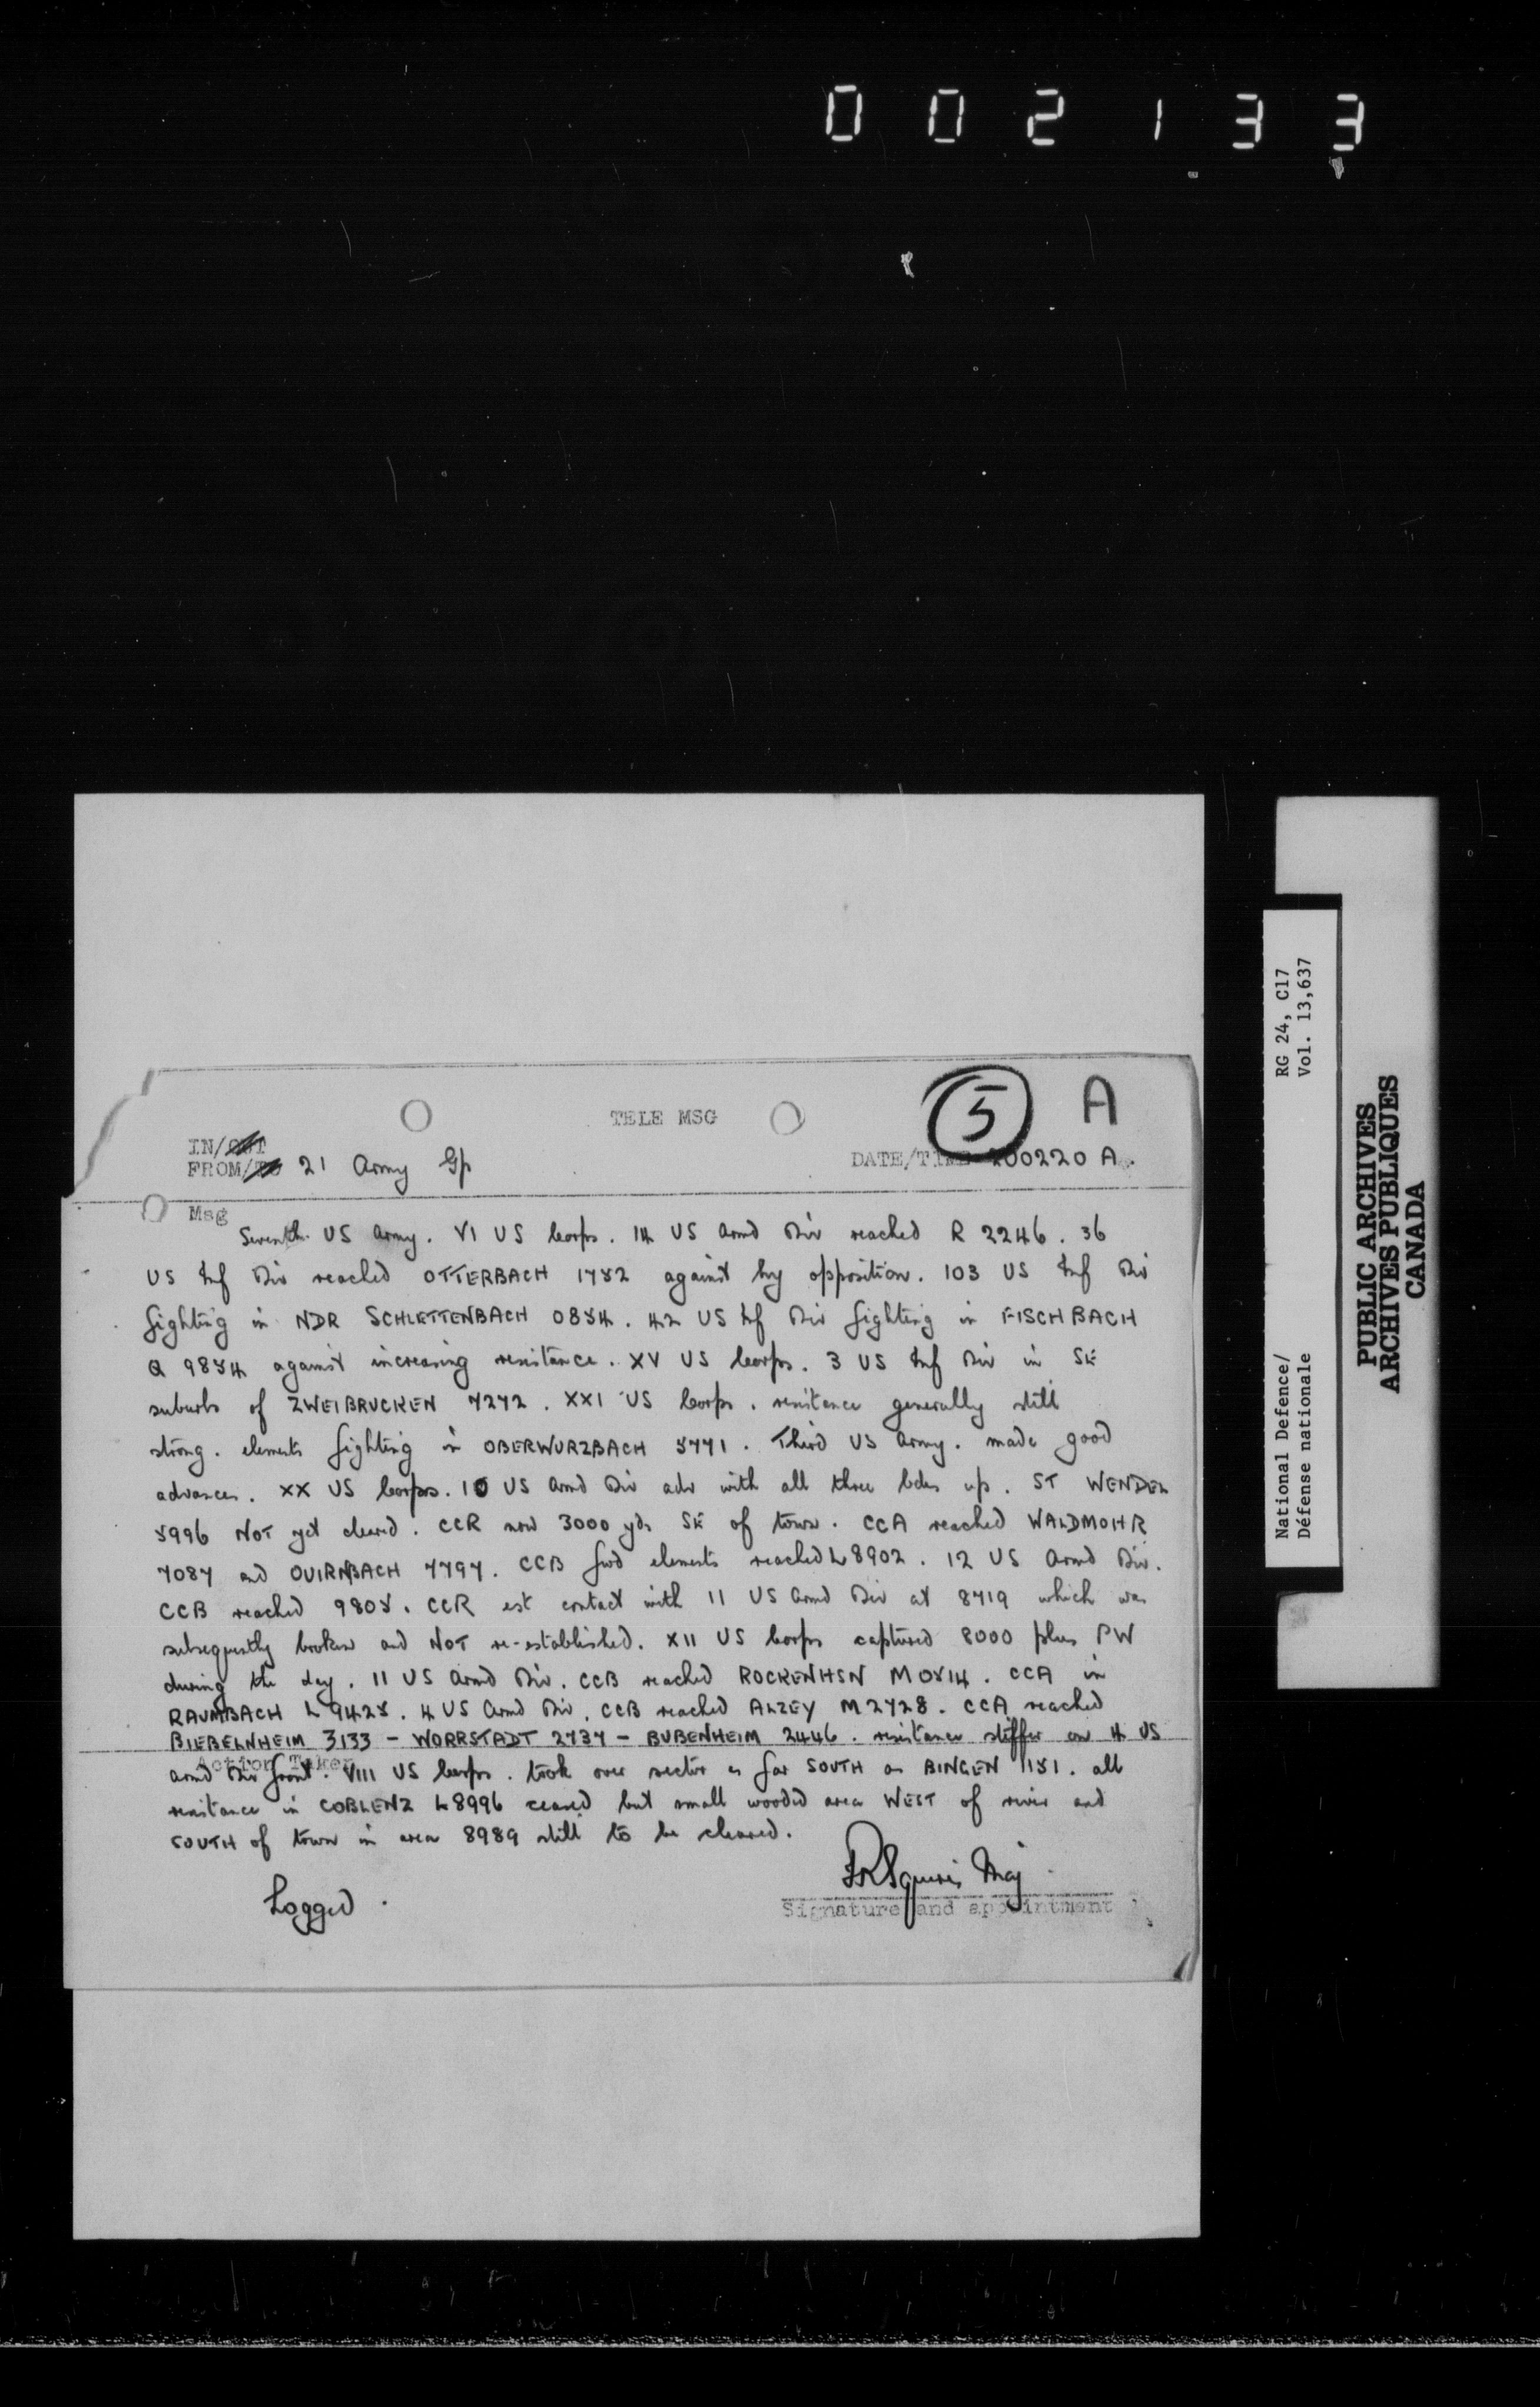 002133
TELE MSG
5 A
IN/OUT
FROM/TO 21 Army Gp
DATE/TIME 200220 A.
Msg
Seventh US Army. VI US Corps. 14 US Armd Div reached R 2246. 36
US Inf Div reached OTTERBACH 1752 against hy opposition. 103 US Inf Div
fighting in NDR SCHLETTENBACH 0854. 42 US Inf Div fighting in FISCHBACH
Q 9854 against increasing resistance. XV US Corps. 3 US Inf Div in SE
suburbs of ZWEIBRUCKEN 7272. XXI US Corps. resistance generally still
strong. elements fighting in OBERWURZBACH 5771. Third US Army. made good
advances. XX US Corps. 10 US Armd Div adv with all three bdes up. ST WENDEL
5996 NOT yet cleared. CCR now 3000 yds SE of town. CCA reached WALDMOHR
7087 and OUIRNBACH 7797. CCB fwd elements reached L 8902. 12 US Armd Div.
CCB reached 9805. CCR est contact with 11 US Armd Div at 8719 which was
subsequently broken and NOT re-established. XII US Corps captured 8000 plus PW
during the day. 11 US Armd Div. CCB reached ROCKENHSN M 0514. CCA in
RAUMBACH L 9425. 4 US Armd Div. CCB reached ALZEY M 2728. CCA reached
BIEBELNHEIM 3133 - WORRSTADT 2737 - BUBENHEIM 2446. resistance stiffer on 4 US
Action Taken
Armd Div front. VIII US Corps. took over sector as far SOUTH as BINGEN 1151. all
resistance in COBLENZ L 8996 ceased but small wooded area WEST of river and
SOUTH of town in area 8989 still to be cleared.
Squires Maj
Logged.
Signature and appointment
RG 24, C17
Vol. 13,637
National Defence/
Défense nationale
PUBLIC ARCHIVES
ARCHIVES PUBLIQUES
CANADA